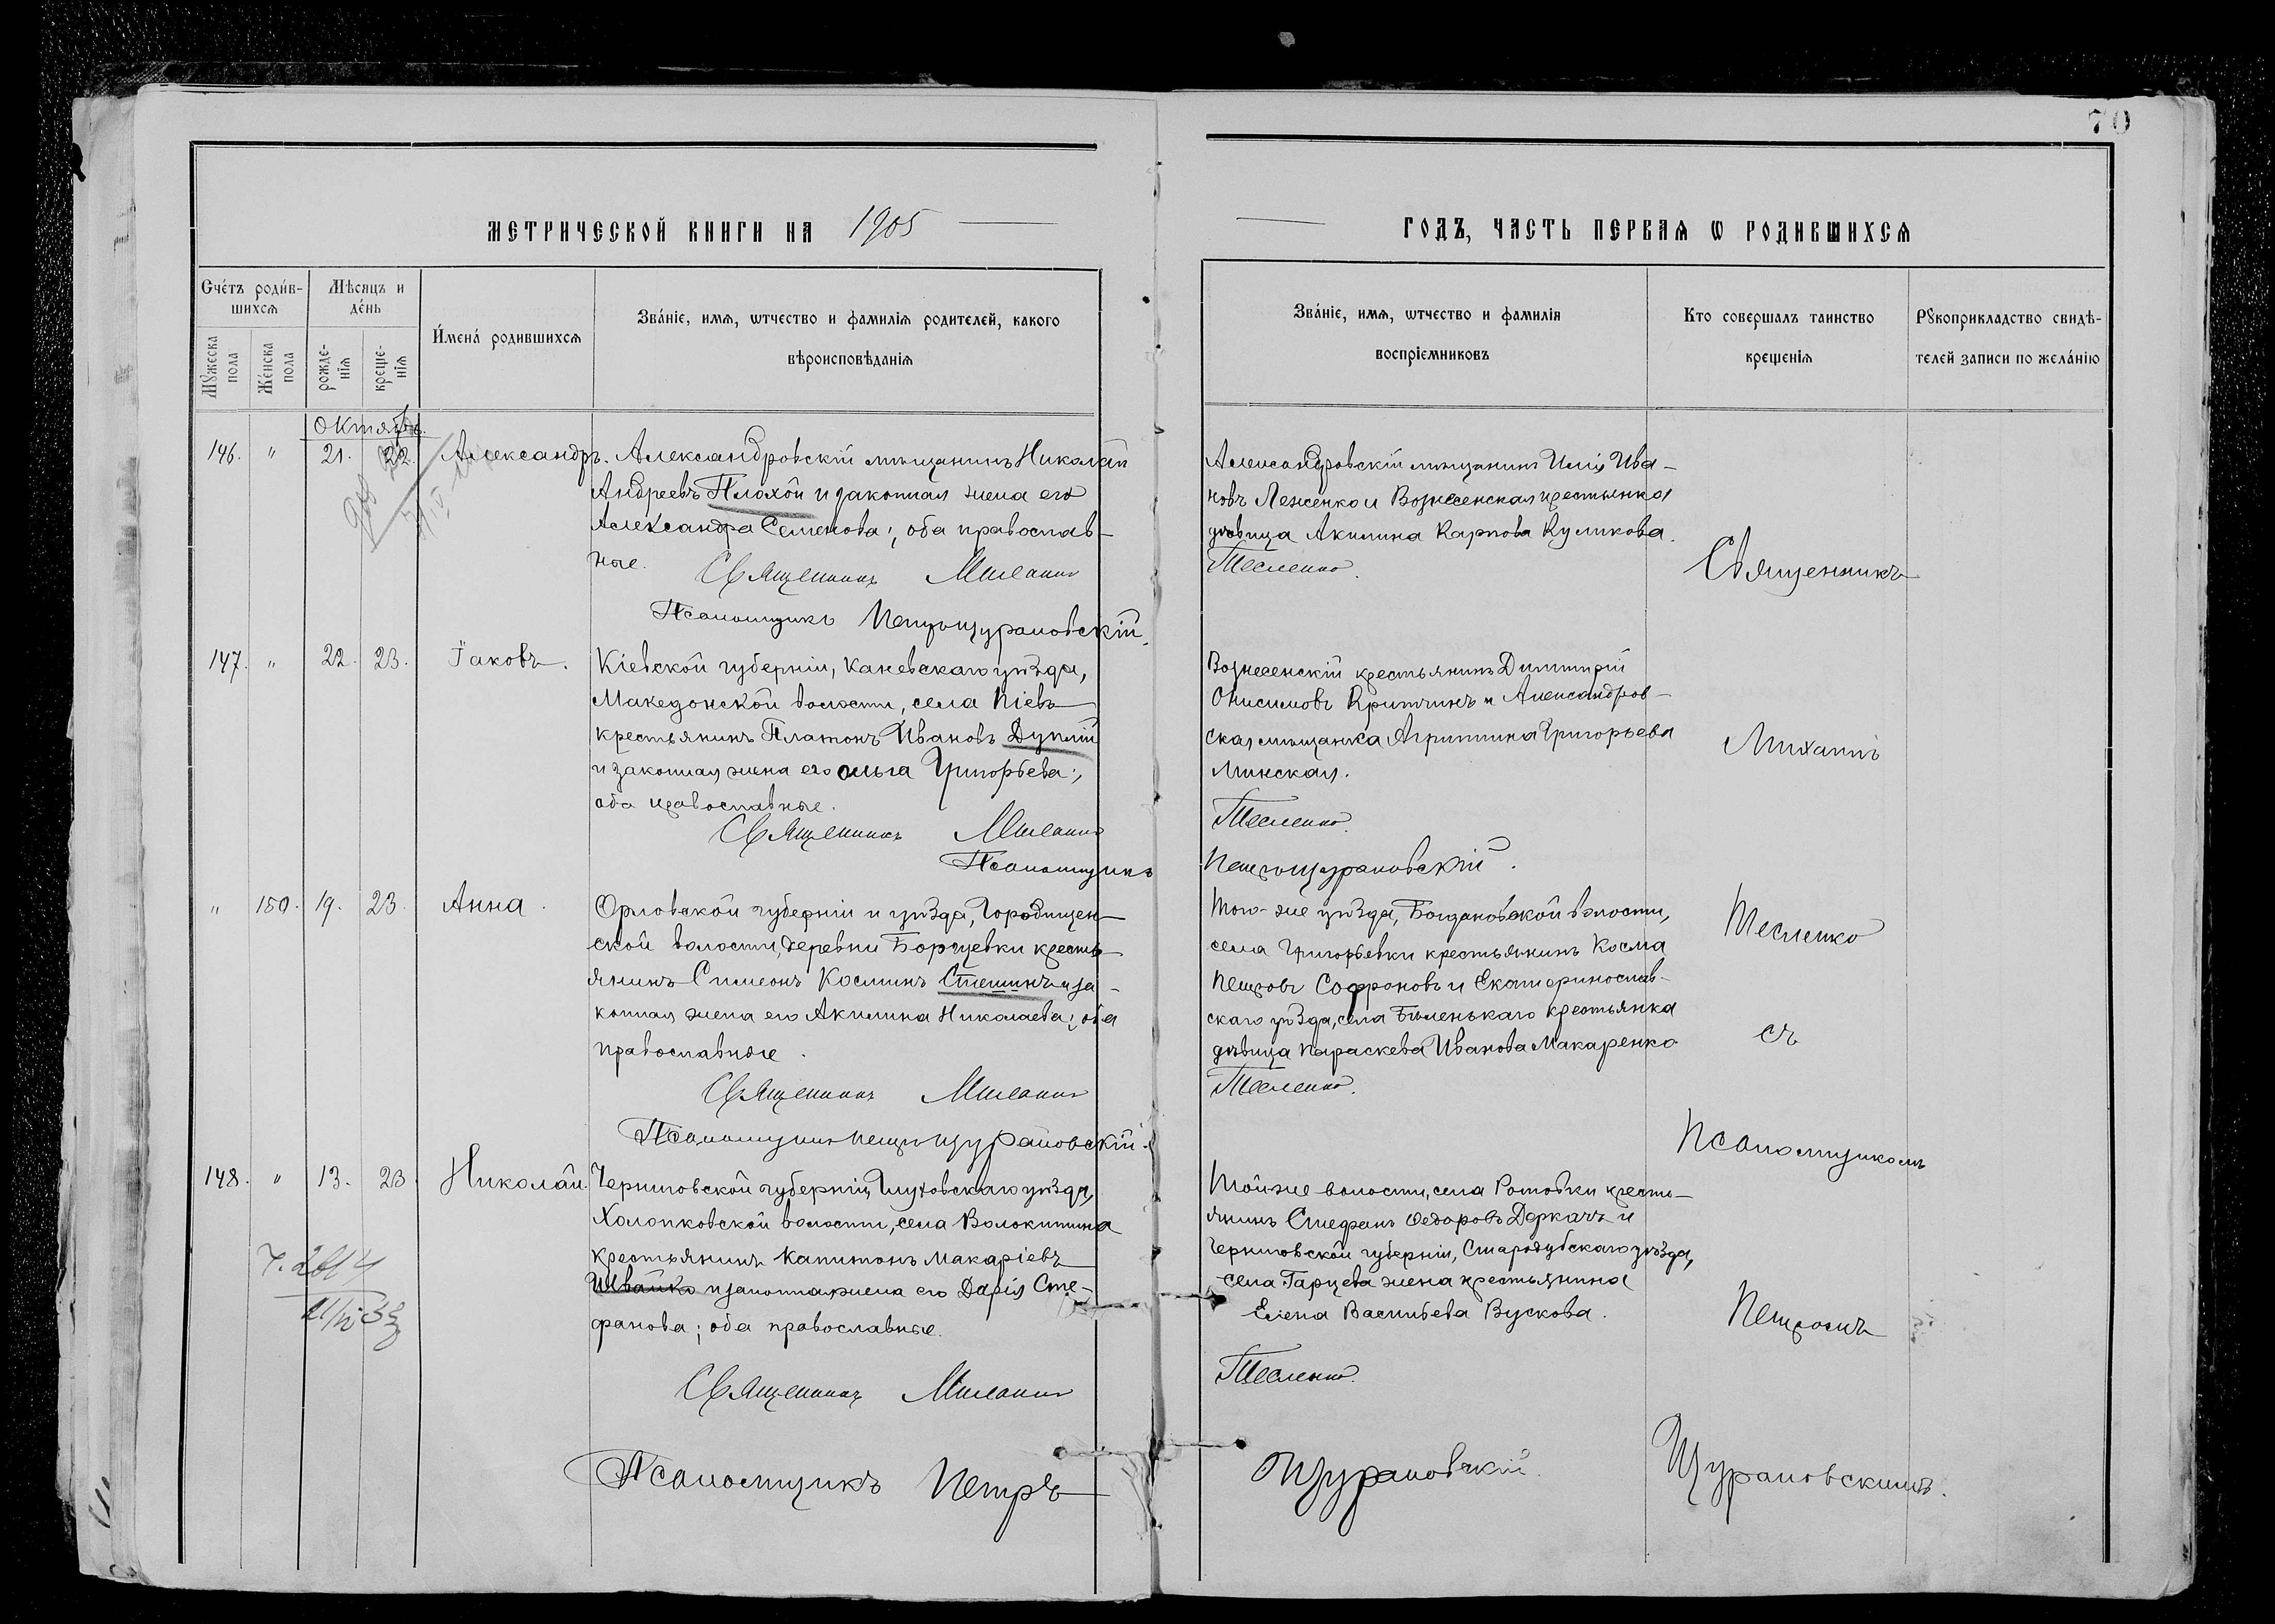 70
МЕТРИЧЕСКОЙ КНИГИ НА 1905
ГОДЪ, ЧАСТЬ ПЕРВАЯ Ѡ РОДИВШИХСѦ
Счетъ родив-
шихсѧ
Мѣсяцъ и
день
Имена родившихсѧ
Званіе, имѧ, ѡтчество и фамиліѧ родителей, какого
вѣроисповѣданіѧ
Мужеска
пола
Женска
пола
рожде-
ніѧ
креще-
ніѧ
Званіе, имѧ, ѡтчество и фамиліѧ
воспріемниковъ
Кто совершалъ таинство
крещеніѧ
Рꙋкоприкладство свидѣ-
телей записи по желанію
Октябрь.
146. " 21. 22. Александръ.
Александровскій мѣщанинъ Николай
Андреевъ Плохой и законная жена его
Александра Семенова; оба православ-
ные.
Священникъ Михаилъ
Псаломщикъ Петръ Щурановскій.
Александровскій мѣщанинъ Илія Ива-
новъ Леженко и Вознесенская крестьянка
дѣвица Акилина Карпова Куликова.
Тесленко.
147. " 22. 23. Іаковъ.
Кіевской губерніи, Каневскаго уѣзда,
Македонской волости, села Кіевъ
крестьянинъ Платонъ Ивановъ Дуплій
и законная жена его Ольга Григорьева;
оба православные.
Священникъ Михаилъ
Псаломщикъ
Вознесенскій крестьянинъ Димитрій
Онисимовъ Критчинъ и Александров-
ская мѣщанка Агриппина Григорьева
Минская.
Тесленко.
Петръ Щурановскій.
" 150. 19. 23. Анна.
Орловской губерніи и уѣзда, Городищен-
ской волости, деревни Борщевки кресть-
янинъ Симеонъ Косминъ Стешинъ и за-
конная жена его Акилина Николаева; оба
православные.
Священникъ Михаилъ
Псаломщикъ Петръ Щурановскій.
Того-же уѣзда, Богдановской волости,
села Григорьевки крестьянинъ Косма
Петровъ Софроновъ и Екатеринослав-
скаго уѣзда, села Бѣленькаго крестьянка
дѣвица Параскева Иванова Макаренко
Тесленко.
148. " 13. 23. Николай.
Черниговской губерніи, Глуховскаго уѣзда,
Холопковской волости, села Волокитина
крестьянинъ Капитонъ Макаріевъ
Швайко и законная жена его Дарія Сте-
фанова; оба православные.
Священникъ Михаилъ
Псаломщикъ Петръ
Той же волости, села кресть-
янинъ Стефанъ Ѳедоровъ Деркачъ и
Черниговской губерніи, Стародубскаго уѣзда,
села Гарцева жена крестьянина
Елена Васильева Вускова.
Тесленко.
Щурановскій.
Священникъ
Михаилъ
Тесленко
съ
Псаломщикомъ
Петромъ
Щурановскимъ.